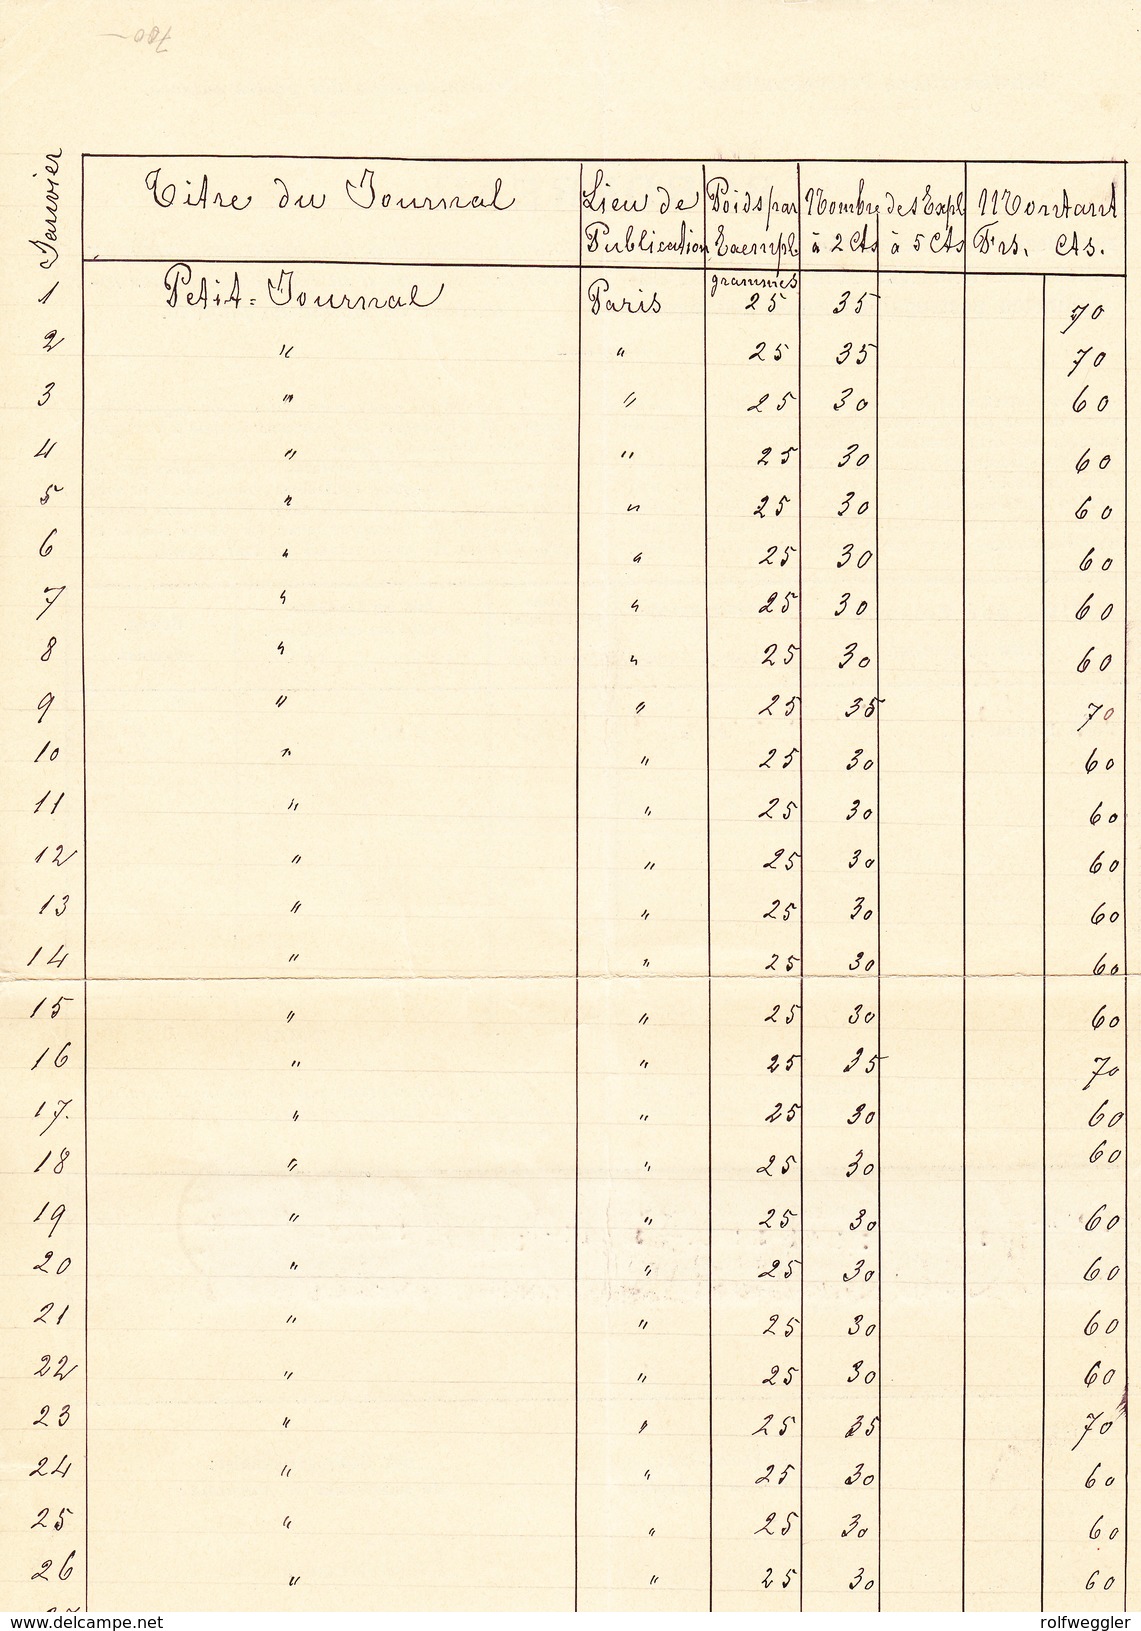 700-
Janvier
Titre du Journal Lieu de Publication Poids par Exempl. Nombre des Expl. à 2 Cts à 5 Cts Montant Frs. Cts.
grammes
1 Petit-Journal Paris 25 35 70
2 " " 25 35 70
3 " " 25 30 60
4 " " 25 30 60
5 " " 25 30 60
6 " " 25 30 60
7 " " 25 30 60
8 " " 25 30 60
9 " " 25 35 70
10 " " 25 30 60
11 " " 25 30 60
12 " " 25 30 60
13 " " 25 30 60
14 " " 25 30 60
15 " " 25 30 60
16 " " 25 35 70
17. " " 25 30 60
18 " " 25 30 60
19 " " 25 30 60
20 " " 25 30 60
21 " " 25 30 60
22 " " 25 30 60
23 " " 25 35 70
24 " " 25 30 60
25 " " 25 30 60
26 " " 25 30 60
www.delcampe.net rolfweggler